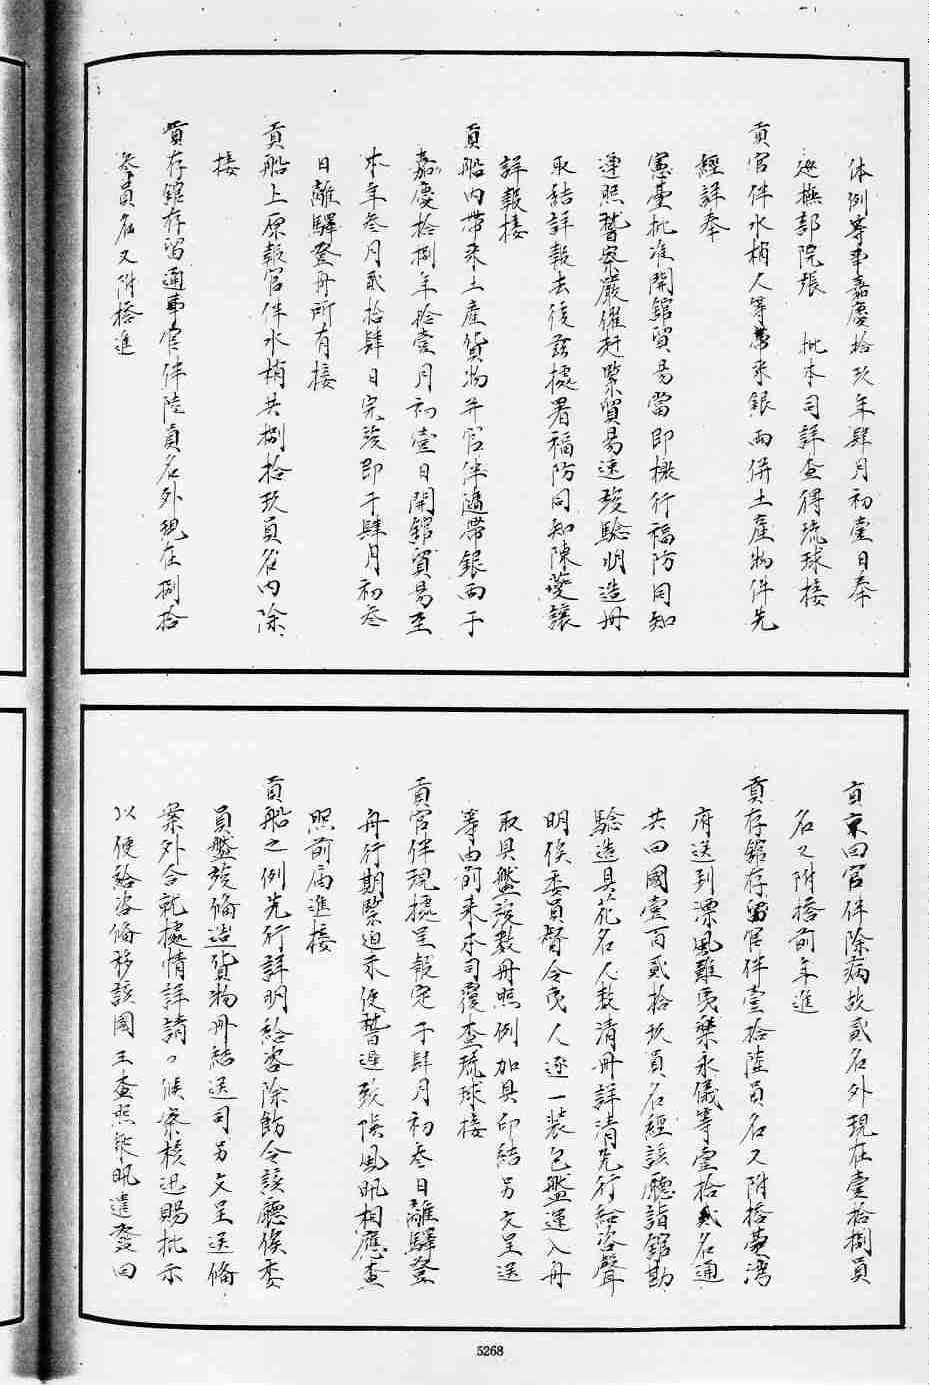 体例等事嘉慶拾玖年肆月初壹日奉
巡撫部院張　批本司詳查得琉球接
貢官伴水梢人等帶來銀兩併土產物件先
經詳奉
憲臺批准開館貿易當即檄行福防同知
遵照督察嚴催赶緊貿易速竣驗明造冊
取結詳報去後茲據署福防同知陳蘷讓
詳報接
貢船內帶來土產貨物并官伴隨帶銀兩于
嘉慶拾捌年拾壹月初壹日開館貿易至
本年叁月貳拾肆日完竣即于肆月初叁
日離驛登舟所有接
貢船上原報官伴水梢共捌拾玖員名內除
接
貢存館存留通事官伴陸員名外現在捌拾
叁員名又附搭進
貢京回官伴除病故貳名外現在壹拾捌員
名又附搭前年進
貢存館存留官伴壹拾陸員名又附搭臺灣
府送到漂風難夷樂永儀等壹拾貳名通
共回國壹百貳拾玖員名經該廳詣館勘
驗造具花名人數清冊詳請先行給咨聲
明俟委員督令夷人逐一裝包盤運入舟
取具盤竣數冊照例加具印結另文呈送
等由前來本司覆查琉球接
貢官伴現據呈報定于肆月初叁日離驛登
舟行期緊迫未便暫遲致悞風帆相應查
照前屆進接
貢船之例先行詳明給咨除飭令該廳俟委
員盤竣備造貨物冊結送司另文呈送備
案外合就據情詳請〃候察核迅賜批示
以便給咨備移該國王查照銀帆遣發回
5268